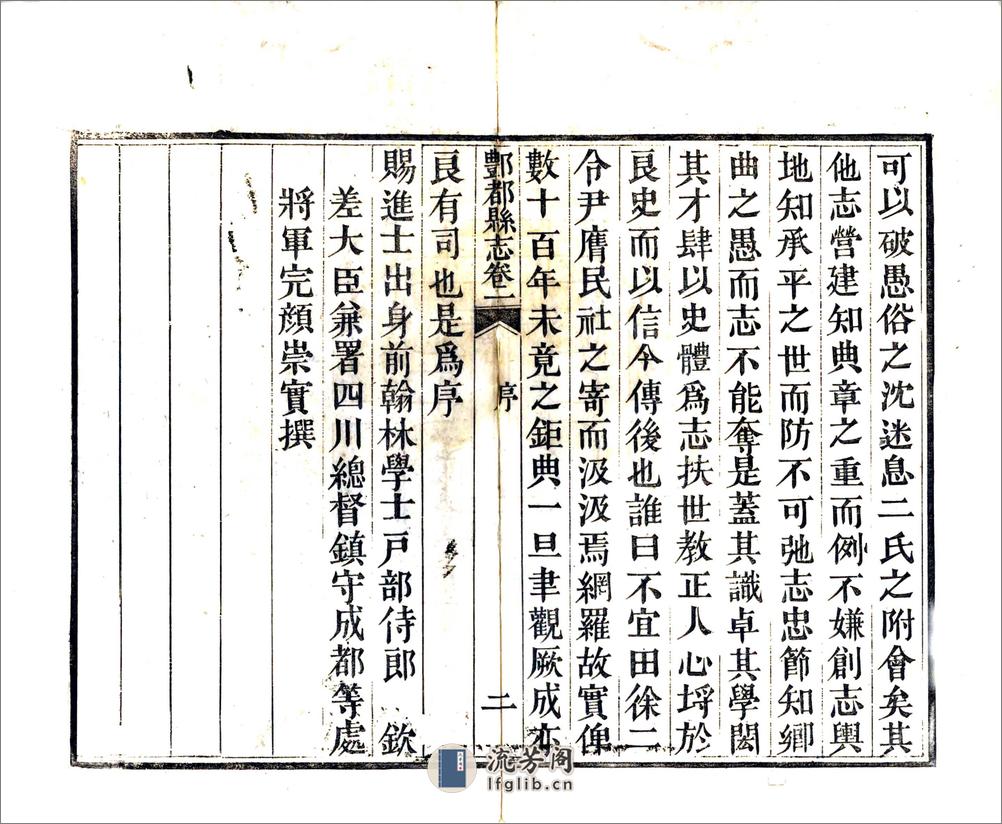 可以破愚俗之沈迷息二氏之附會矣其
他志營建知典章之重而例不嫌創志輿
地知承平之世而防不可弛志忠節知鄉
曲之愚而志不能奪是蓋其識卓其學閎
其才肆以史體為志扶世教正人心埓於
良史而以信今傳後也誰曰不宜田徐二
令尹膺民社之寄而汲汲焉網羅故實俾
數十百年未竟之鉅典一旦聿觀厥成亦
酆都縣志卷一 序 二
良有司也是爲序
賜進士出身前翰林學士戸部侍郎 欽
差大臣兼署四川總督鎮守成都等處
將軍完顏崇實撰
流芳阁
lfglib.cn